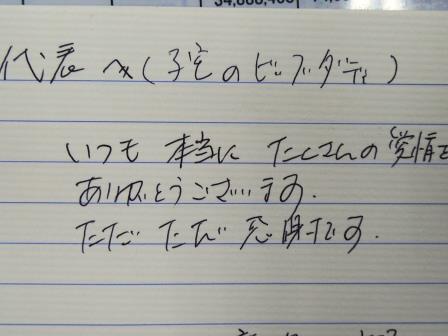 代表 へ(子宝のビッグダディ)
いつも 本当に たくさんの 愛情を
ありがとうございます。
ただ ただ 感謝です。